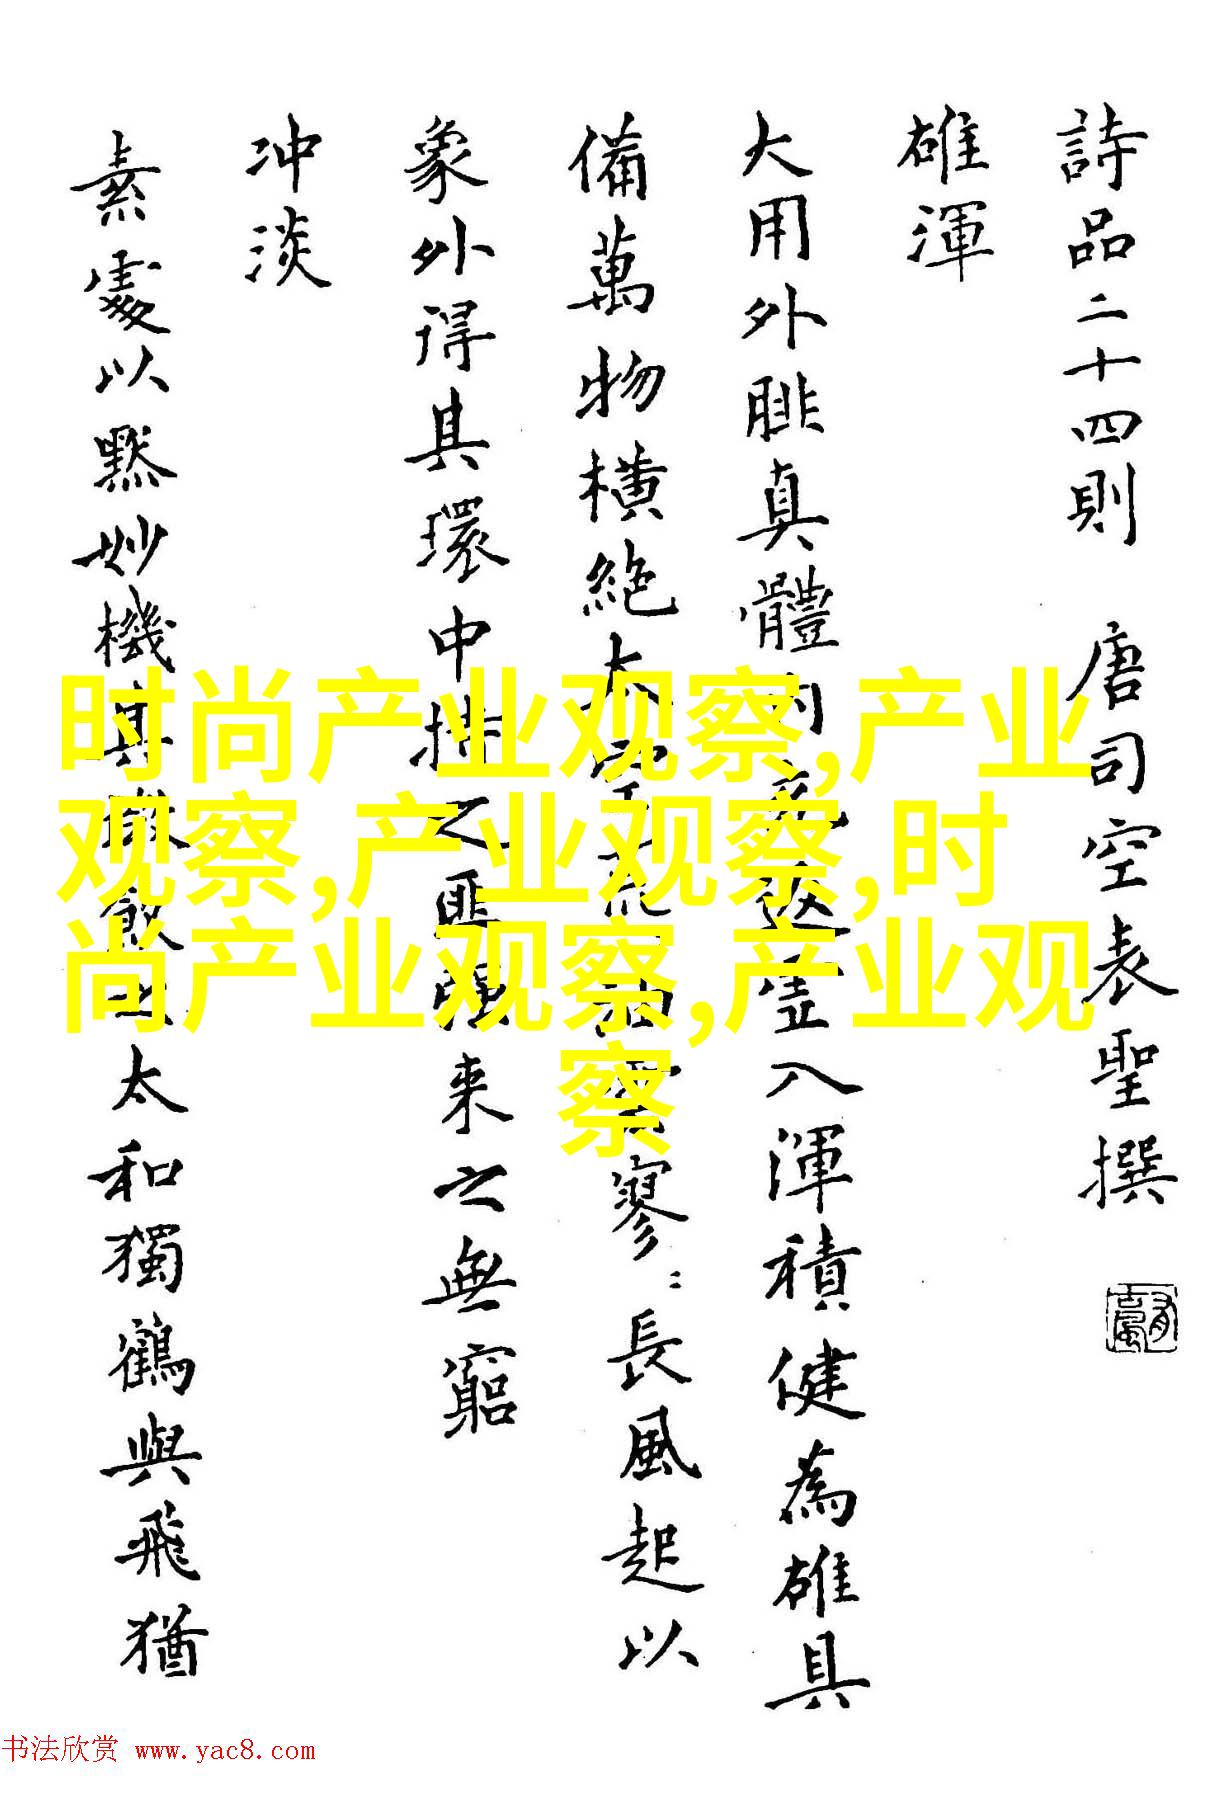 詩品二十四則 唐司空表聖撰
雄渾
大用外腓真體內充返虛入渾積健為雄具
備萬物橫絕太空荒荒油雲寥〻長風起以
象外得其環中持之匪強来之無窮
冲淡
素處以默妙機其微飲之太和獨鶴與飛猶
时尚产业观察,产业
观察,产业观察,时
尚产业观察,产业观
察
书法欣赏 www.yac8.com